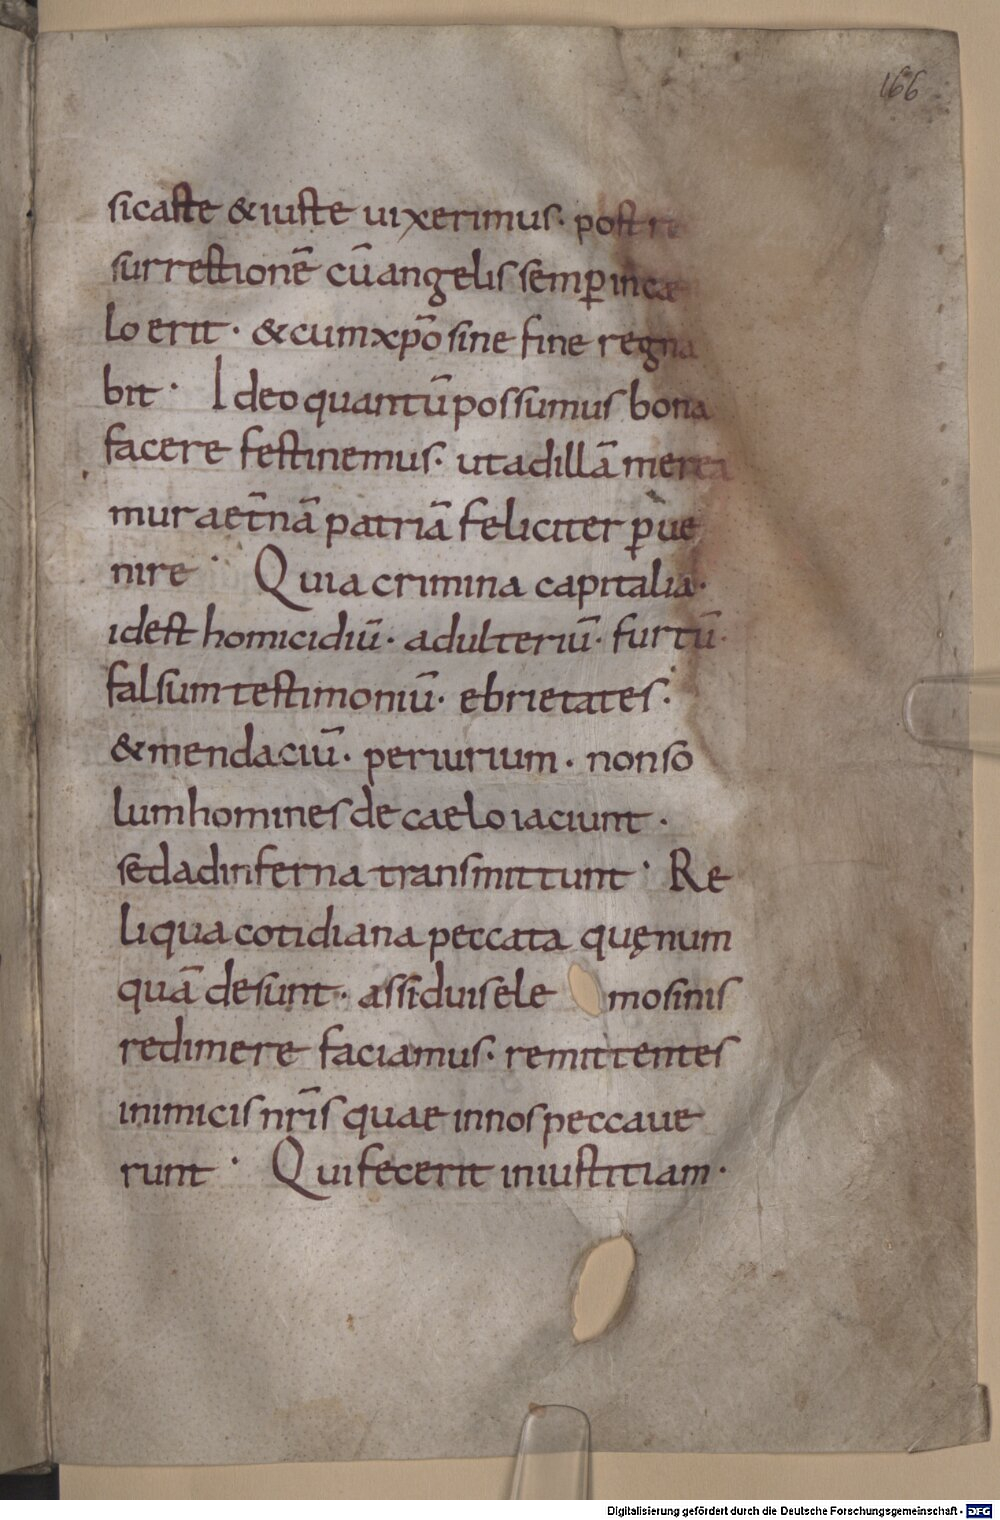 166
si caste & iuste uixerimus· post re
surrectionē cū angelis semꝑ in cæ
lo erit· & cum xp̄o sine fine regna
bit· Ideo quantū possumus bona
facere festinemus· ut ad illā merea
mur aet̄nā patriā feliciter ꝑue
nire· Quia crimina capitalia·
id est homicidiū· adulteriū· furtū·
falsum testimoniū· ebrietates·
& mendaciū· periurium· non so
lum homines de caelo iaciunt·
sed ad inferna transmittunt· Re
liqua cotidiana peccata quę num
quā desunt· assiduis ele mosinis
redimere faciamus· remittentes
inimicis nr̄is quae in nos peccaue
runt· Qui fecerit iniustitiam·
Digitalisierung gefördert durch die Deutsche Forschungsgemeinschaft - DFG